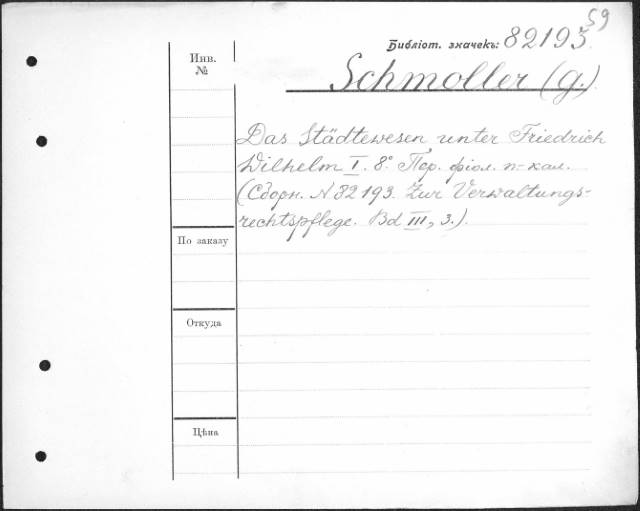 59
Библіот. значекъ: 82193.
Инв.
№
Schmoller (G.)
Das Städtewesen unter Friedrich
Wilhelm I. 8° Пор. фіол. п-кал.
(Сборн. N 82193. Zur Verwaltungs-
rechtspflege. Bd III, 3.).
По заказу
Откуда
Цѣна